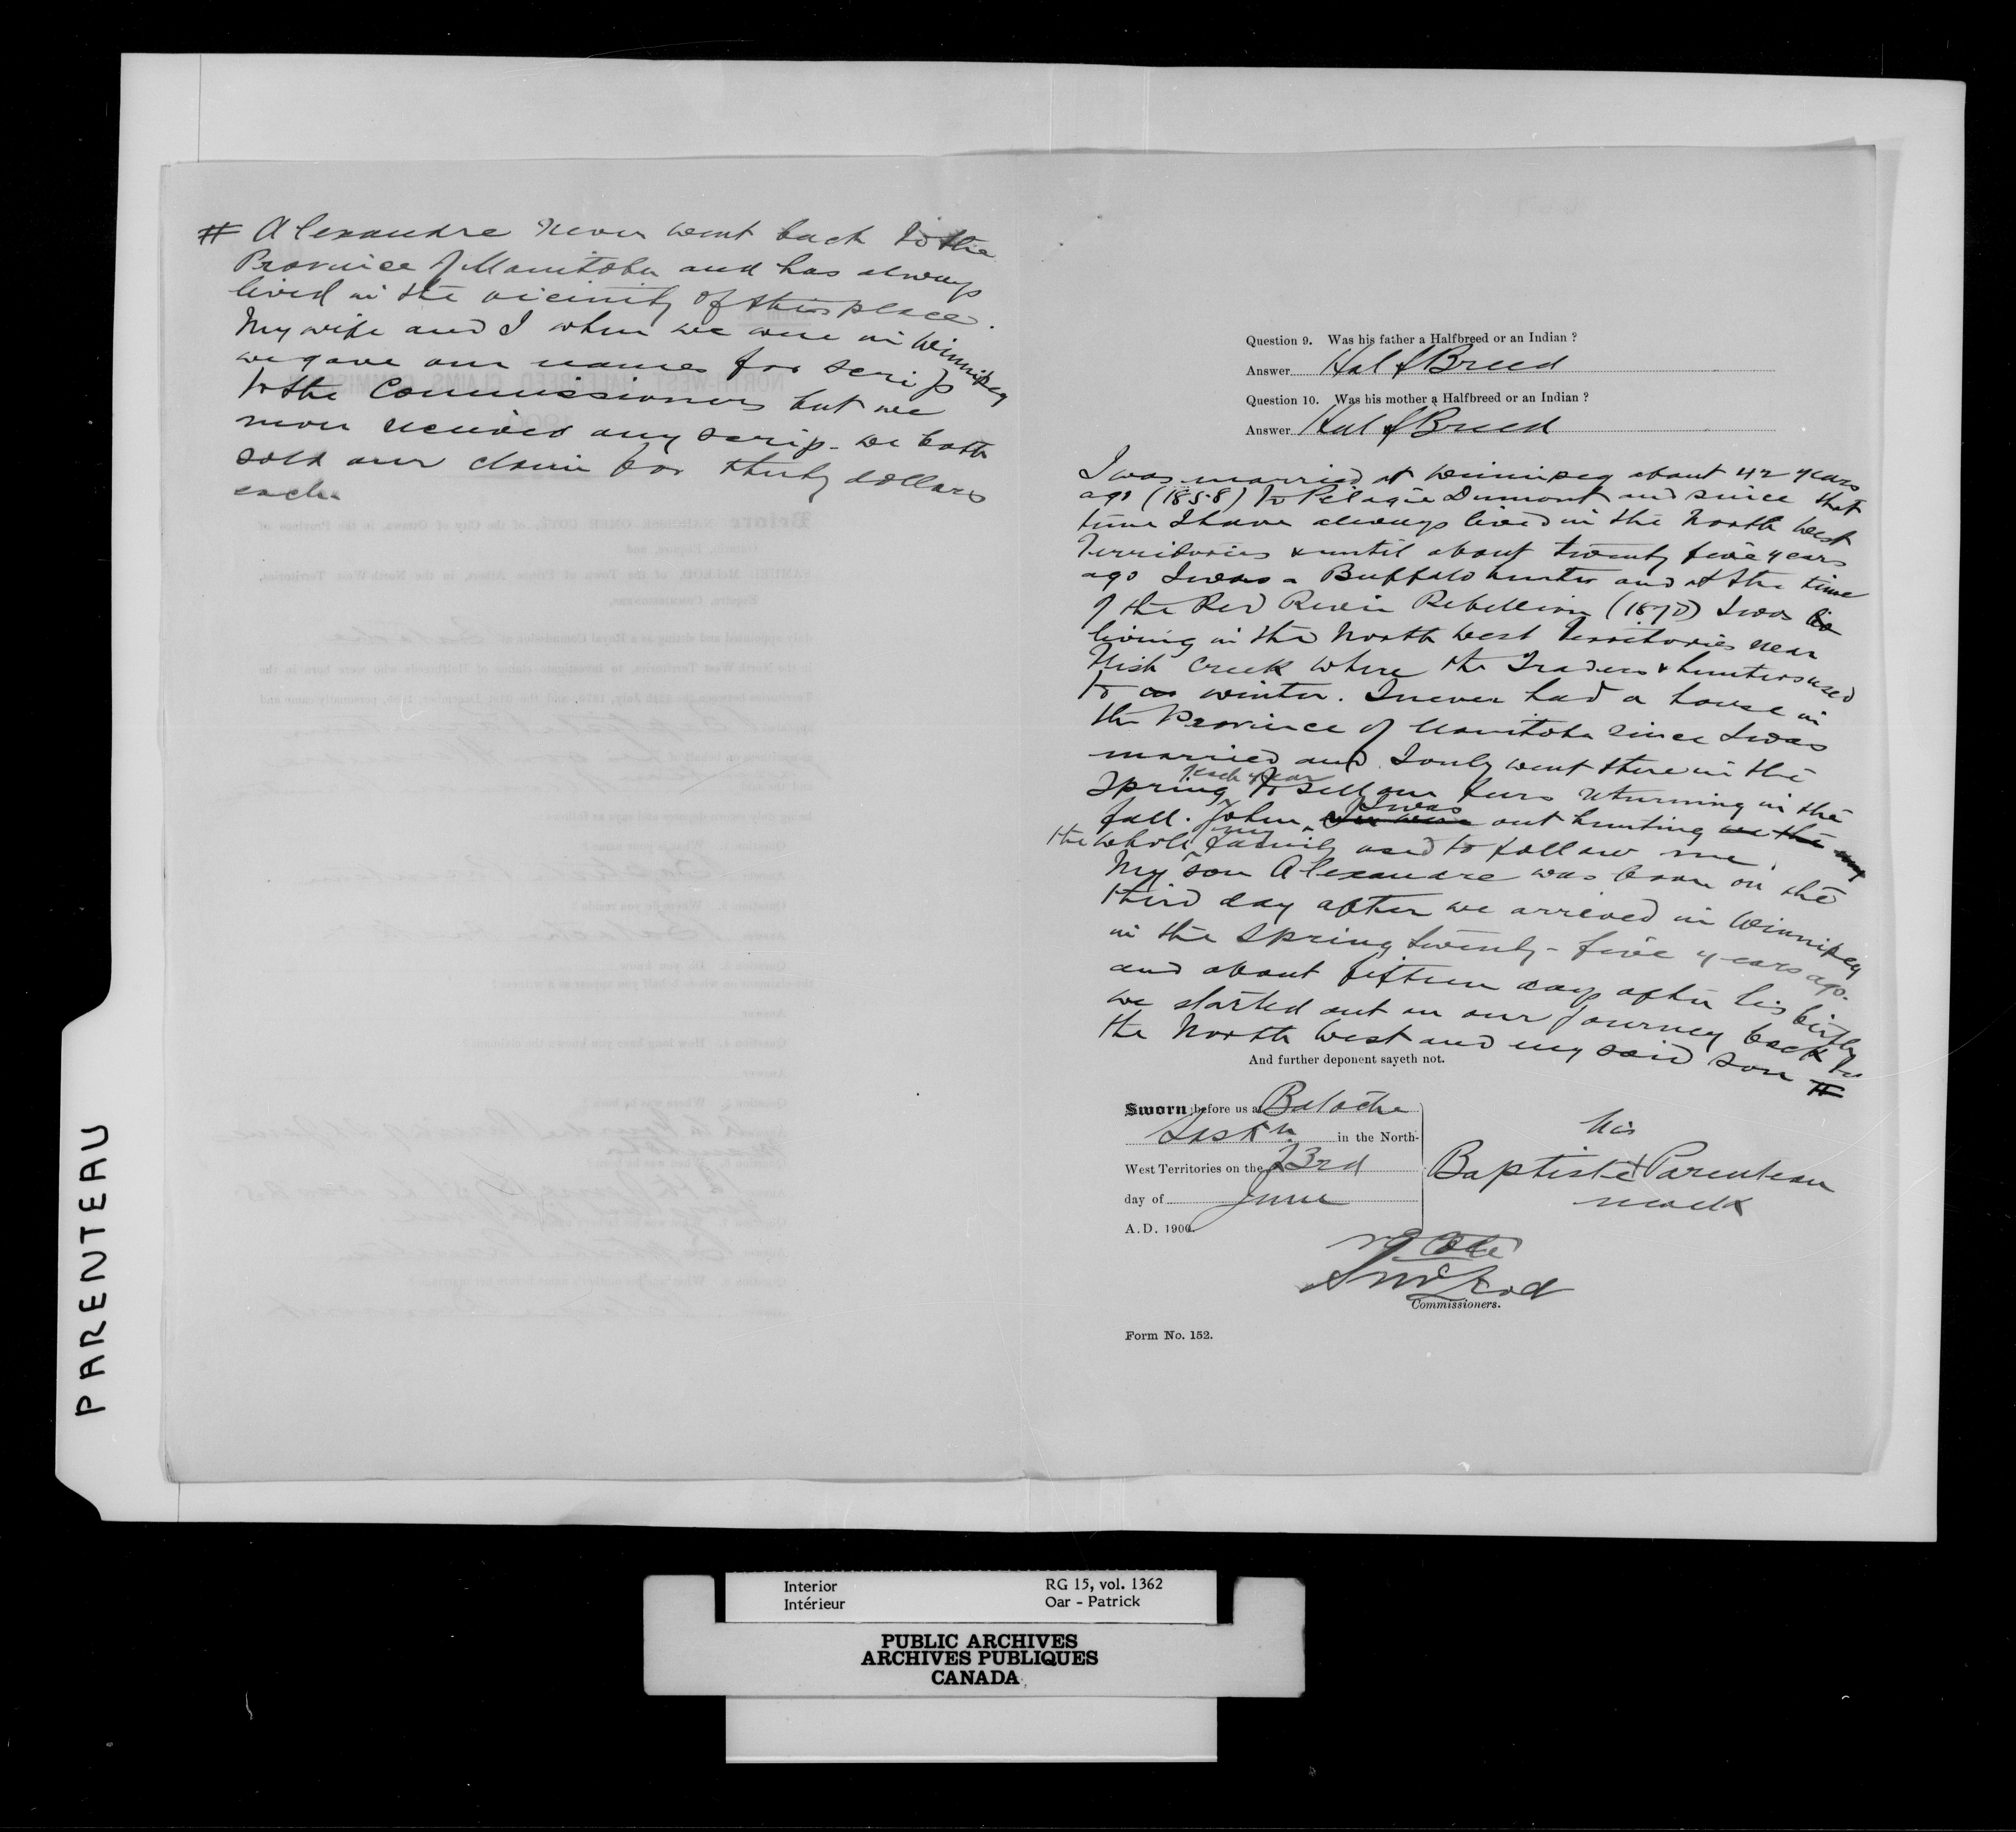 # Alexandre never went back to the
Province of Manitoba and has always
lived in the vicinity of this place.
My wife and I when we were in Winnipeg
we gave our names for scrip
to the Commissioners but we
never received any scrip - we both
sold our claim for thirty dollars
each.
Question 9. Was his father a Halfbreed or an Indian ?
Answer Half Breed
Question 10. Was his mother a Halfbreed or an Indian ?
Answer Half Breed
I was married at Winnipeg about 42 years
ago (1858) to Pelagie Dumont and since that
time I have always lived in the North West
Territories & until about twenty five years
ago I was a Buffalo hunter and at the time
of the Red River Rebellion (1870) I was
living in the North West Territories near
Fish Creek where the Traders & hunters used
to winter. I never had a house in
the Province of Manitoba since I was
married and I only went there in the
Spring of each year to sell our furs returning in the
fall. When I was out hunting
the whole my family used to follow me.
My son Alexandre was born on the
third day after we arrived in Winnipeg
in the Spring twenty-five years ago.
and about fifteen days after his birth
we started out on our journey back to
the North West and my said son #
And further deponent sayeth not.
Sworn before us at Batoche
Sask'n in the North-
West Territories on the 23rd
day of June
A.D. 1900.
his
Baptiste x Parenteau
mark
N.O. Coté
S McLeod
Commissioners.
Form No. 152.
PARENTEAU
Interior RG 15, vol. 1362
Intérieur Oar - Patrick
PUBLIC ARCHIVES
ARCHIVES PUBLIQUES
CANADA